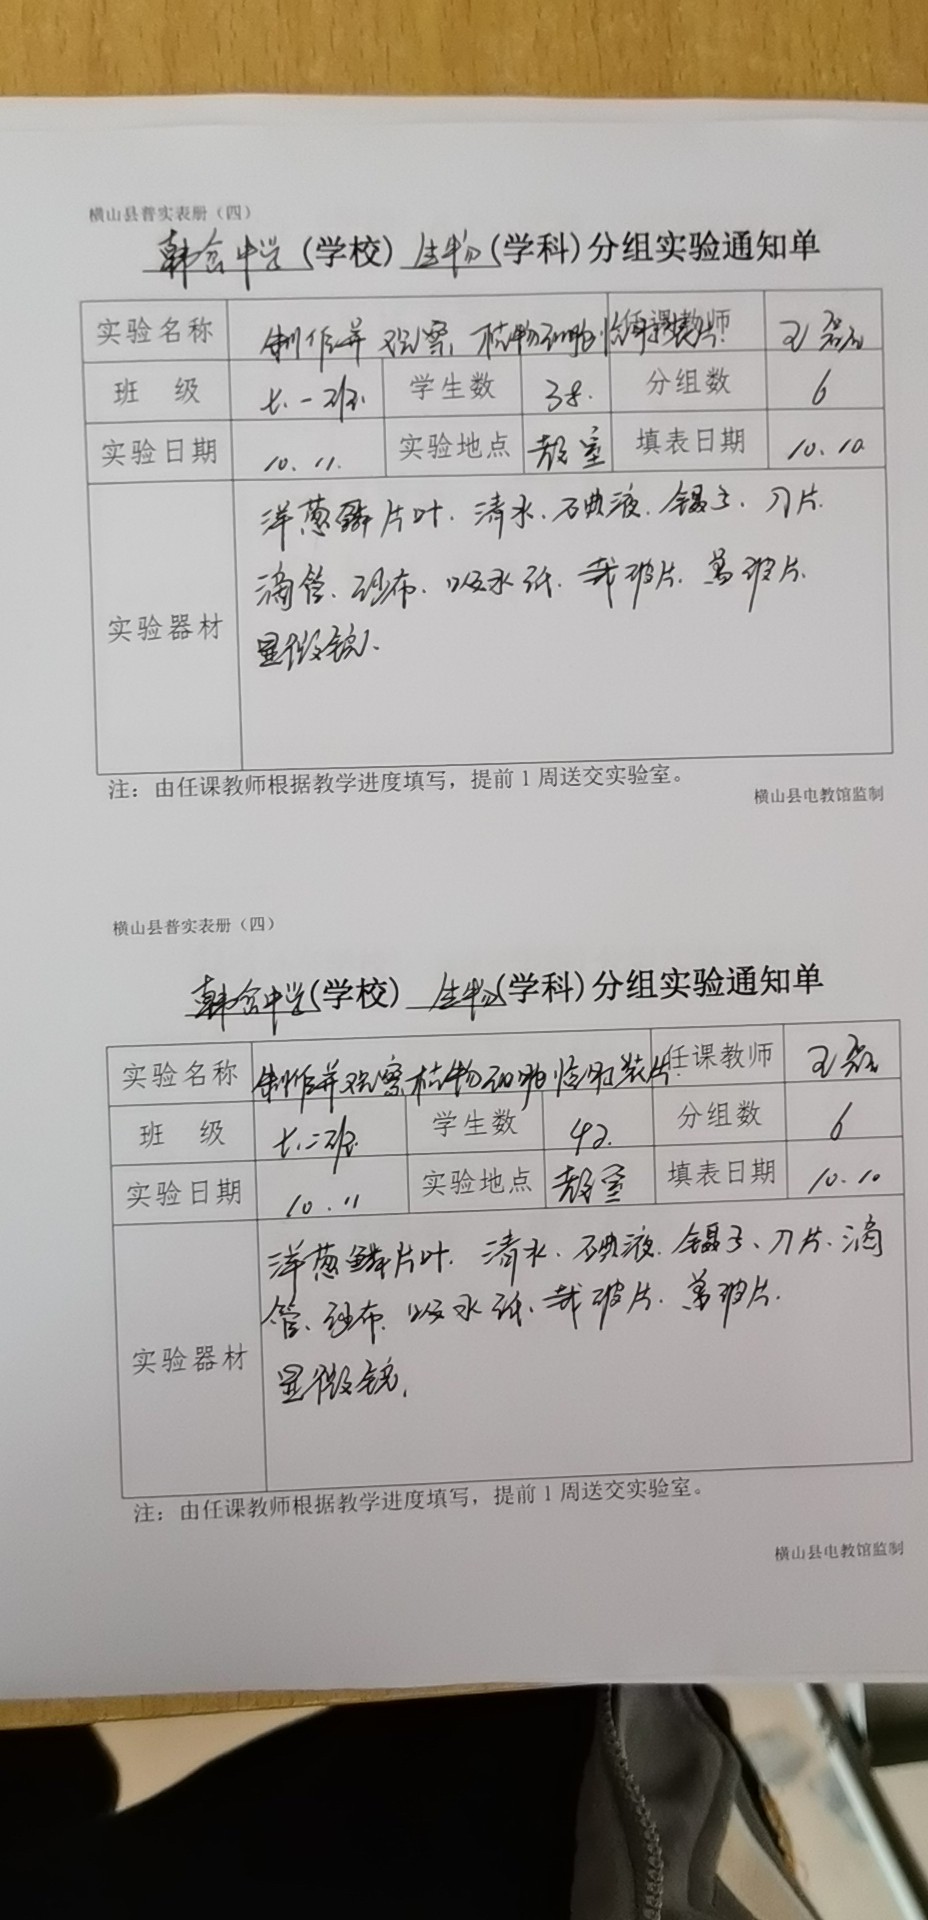 横山县普实表册（四）
韩岔中学(学校) 生物(学科)分组实验通知单
实验名称 制作并观察植物细胞临时装片. 任课教师 王
班 级 七.一班. 学生数 38. 分组数 6
实验日期 10.11. 实验地点 教室 填表日期 10.10
洋葱鳞片叶. 清水. 碘液. 镊子. 刀片.
滴管. 纱布. 吸水纸. 载玻片. 盖玻片.
实验器材
显微镜.
注：由任课教师根据教学进度填写，提前1周送交实验室。
横山县电教馆监制
横山县普实表册（四）
韩岔中学(学校) 生物(学科)分组实验通知单
实验名称 制作并观察植物细胞临时装片. 任课教师 王
班 级 七.二班. 学生数 42. 分组数 6
实验日期 10.11 实验地点 教室 填表日期 10.10
洋葱鳞片叶. 清水. 碘液. 镊子、刀片. 滴
管、纱布. 吸水纸、载玻片. 盖玻片.
实验器材
显微镜.
注：由任课教师根据教学进度填写，提前1周送交实验室。
横山县电教馆监制